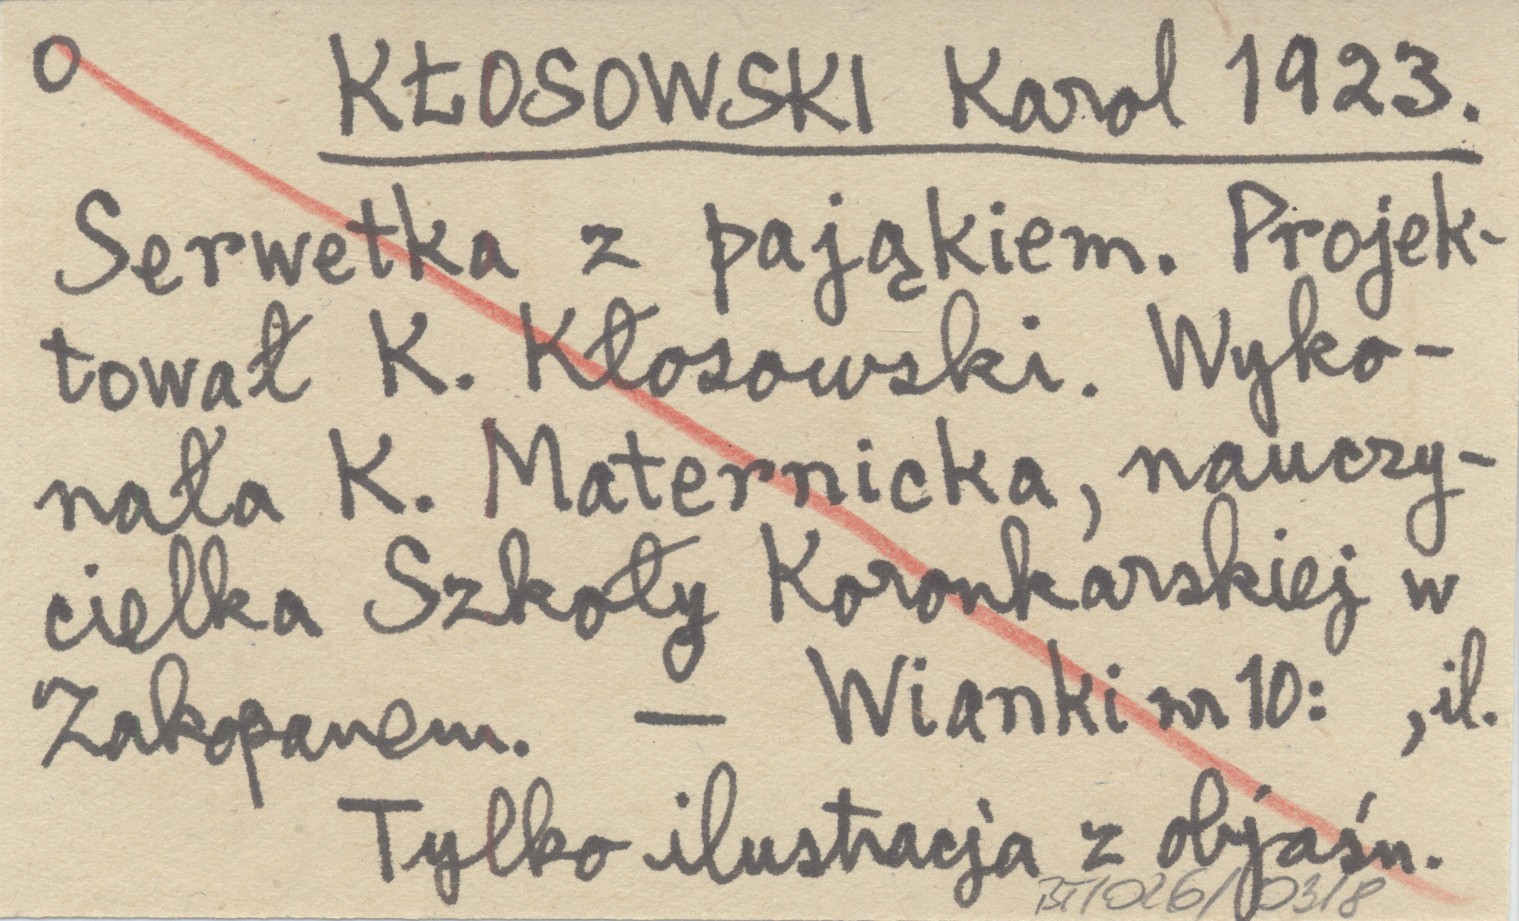 O KŁOSOWSKI Karol 1923.
Serwetka z pająkiem. Projek-
tował K. Kłosowski. Wyko-
nała K. Maternicka, nauczy-
cielka Szkoły Koronkarskiej w
Zakopanem. — Wianki nr 10: , il.
Tylko ilustracja z objaśn.
BT/026/03/8